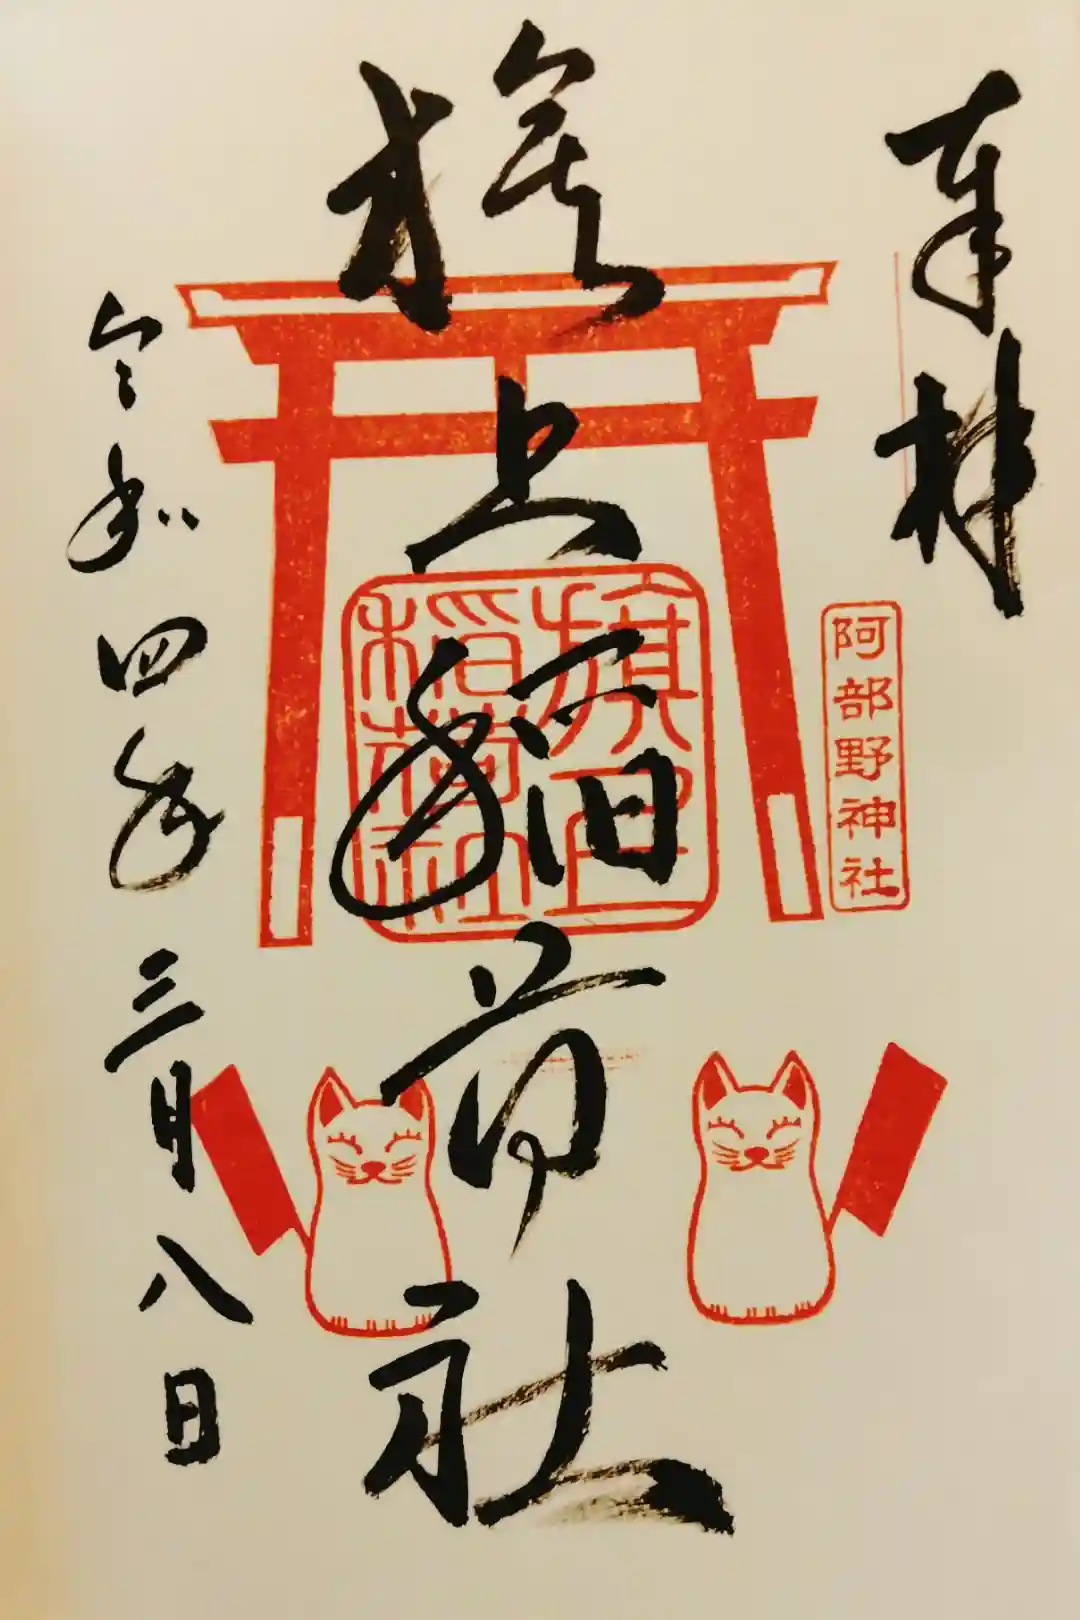 奉拝
阿部野神社
旗上稲荷社
旗上
稲荷社
令和四年三月八日